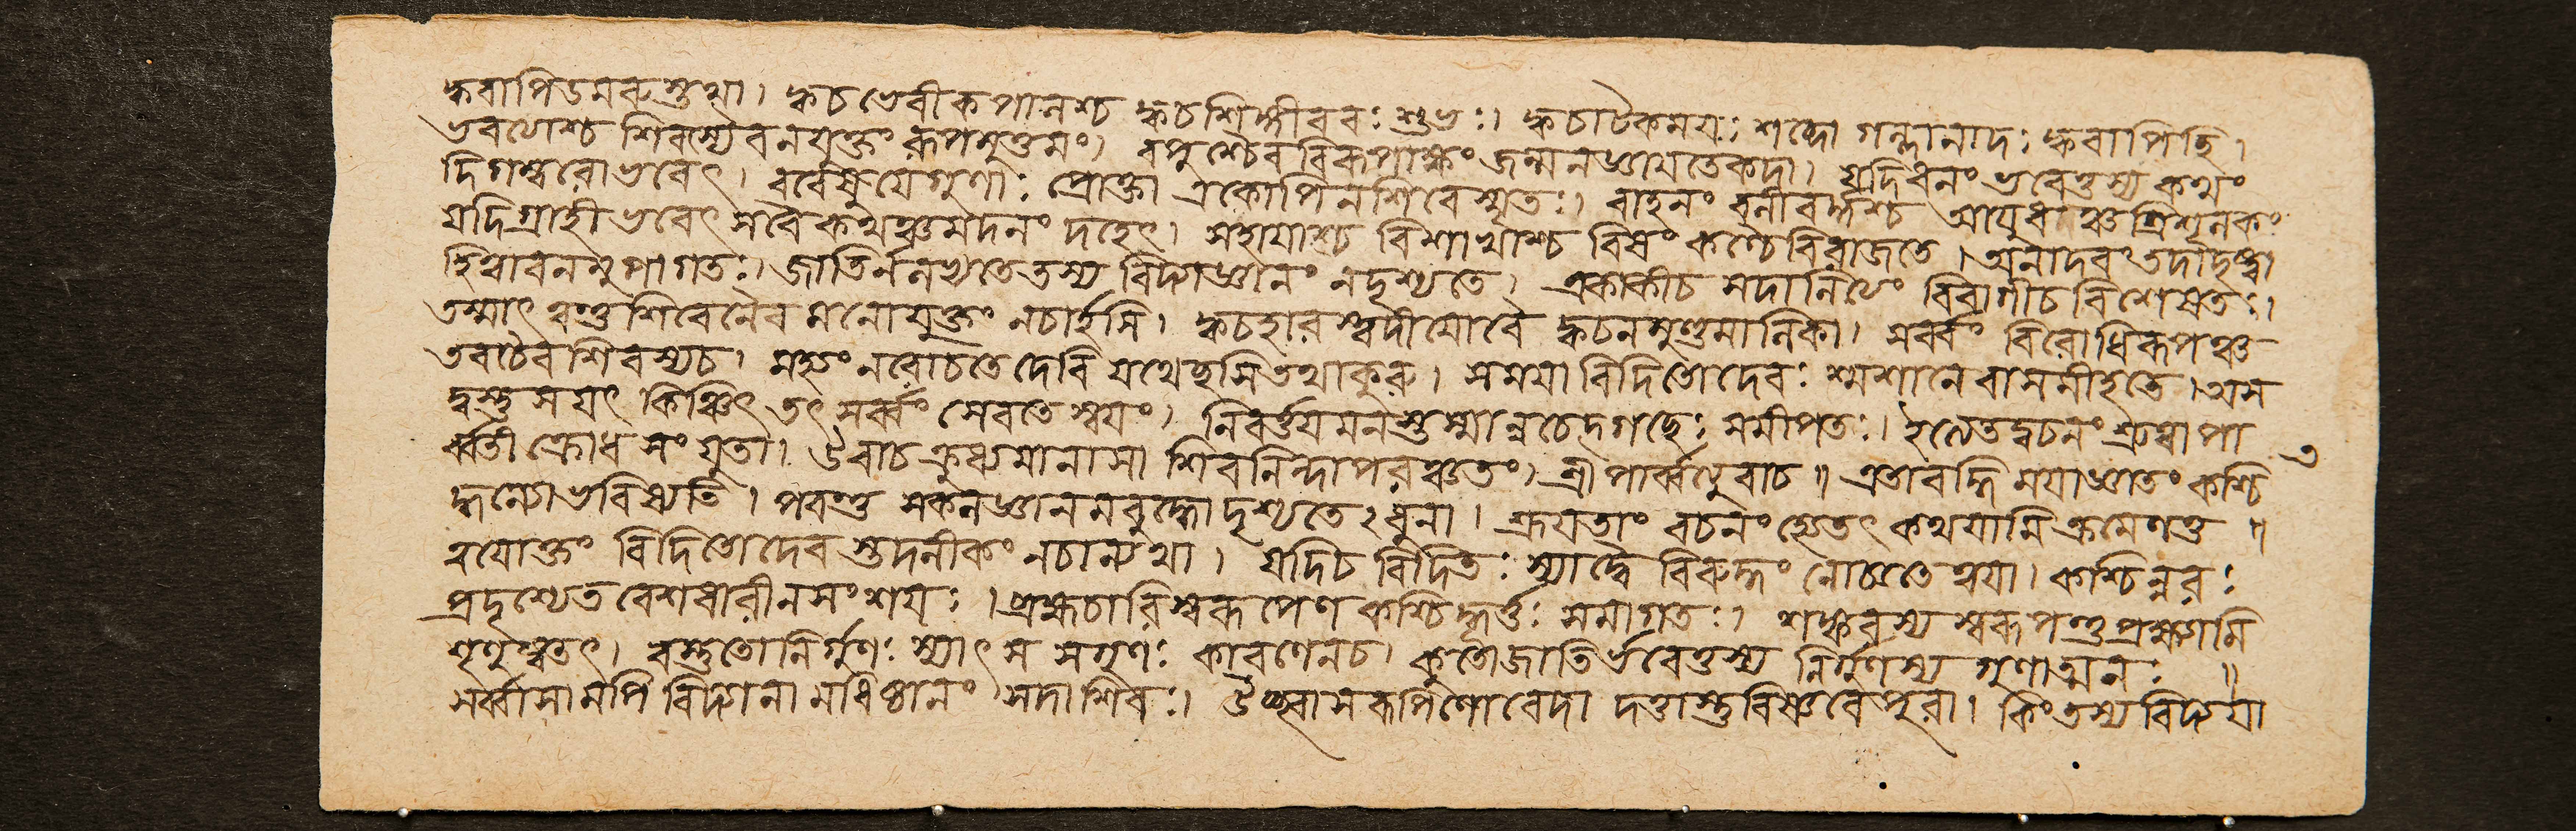 ক্কবাপিডমরুস্তথা। ক্কচভেবীকপানশ্চ ক্কচশিঙ্গীববঃ শুভঃ। ক্কচাটৈকময়ঃ শব্দো গল্লনাদঃ ক্কবাপিহি।
ভবথোশ্চ শিবস্যৈবনযুক্তং রূপমুত্তমং। বপুশ্চৈববিরূপাক্ষং জন্মনজ্ঞাযতেকদা। যদিধনং ভবেত্তস্য কথং
দিগম্বরোভবেৎ। ববেষুযেগুণাঃ প্রোক্তা একোপিনশিবেস্মৃতঃ। বাহনং বনীবর্দ্দশ্চ আযুধাঞ্চত্রিশূনকং
যদিগ্রাহীভবেৎ সবৈ কথঞ্চমদনং দহেৎ। সহাযাশ্চ বিশাখাশ্চ বিষং কণ্ঠেবিরাজতে। অনাদবংতদাদৃষ্ট্বা
হিত্বাবনমুপাগতঃ। জাতির্ননখ্যতেতস্য বিদ্যাজ্ঞানং নদৃশ্যতে। একাকীচ সদানিথং বিবাগীচবিশেষতঃ।
তস্মাৎ ত্বন্তুশিবেনৈব মনোযুক্তং নচার্হসি। ক্কচহারস্ত্বদীযোবৈ ক্কচনমুণ্ডমানিকা। সর্ব্বং বিরোধিরূপঞ্চ
তবচৈবশিবস্যচ। মহ্যং নবোচতেদেবি যথেছসিতথাকুরু। সমযাবিদিতোদেবঃ শ্মশানেবাসমীহতে। অস
দ্বস্তুসযৎ কিঞ্চিৎ তৎ সর্ব্বং সেবতে স্বযং। নিবর্ত্তযমনস্তুস্মান্নচেদ্গছেঃ সমীপতঃ। ইত্যেতদ্বচনং শ্রুত্বাপা
র্ব্বতী ক্রোধসংযুতা। উবাচক্রুধ্যমানাসা শিবনিন্দাপরঞ্চতং। শ্রীপার্ব্বত্যুবাচ॥ এতাবদ্ধি মযাজ্ঞাতং কশ্চি
দ্ধন্যোভবিষ্যতি। পবন্তু সকনজ্ঞানমবুদ্ধোদৃশ্যতেঽধুনা। শ্রূযতাং বচনংহ্যেতৎ কথযামি ক্রমেণতু॥
ত্বযোক্তং বিদিতোদেব স্তদনীকং নচান্যথা। যদিচ বিদিতঃ স্যাদ্বৈ বিরুদ্ধং নোচ্যতেত্বযা। কশ্চিন্নরঃ
প্রদৃশ্যেত বেশধারীনসংশযঃ। ব্রহ্মচারিস্বরূপেণ কশ্চিদ্ধূর্ত্তঃ সমাগতঃ। শঙ্কবস্য স্বরূপন্তুপ্রবক্ষ্যামি
শৃণুষ্বতৎ। বস্তুতোনির্গুণঃ স্যাৎ স সগুণঃ কাবণেনচ। কুতোজাতির্ভবেত্তস্য নির্গুণস্য গুণাত্মনঃ॥
সর্ব্বাসামপি বিদ্যানামধিষ্ঠানং সদাশিবঃ। উচ্ছ্বাসরূপিণোবেদা দত্তাস্তুবিষ্ণবেপুরা। কিংতস্যবিদ্যযা